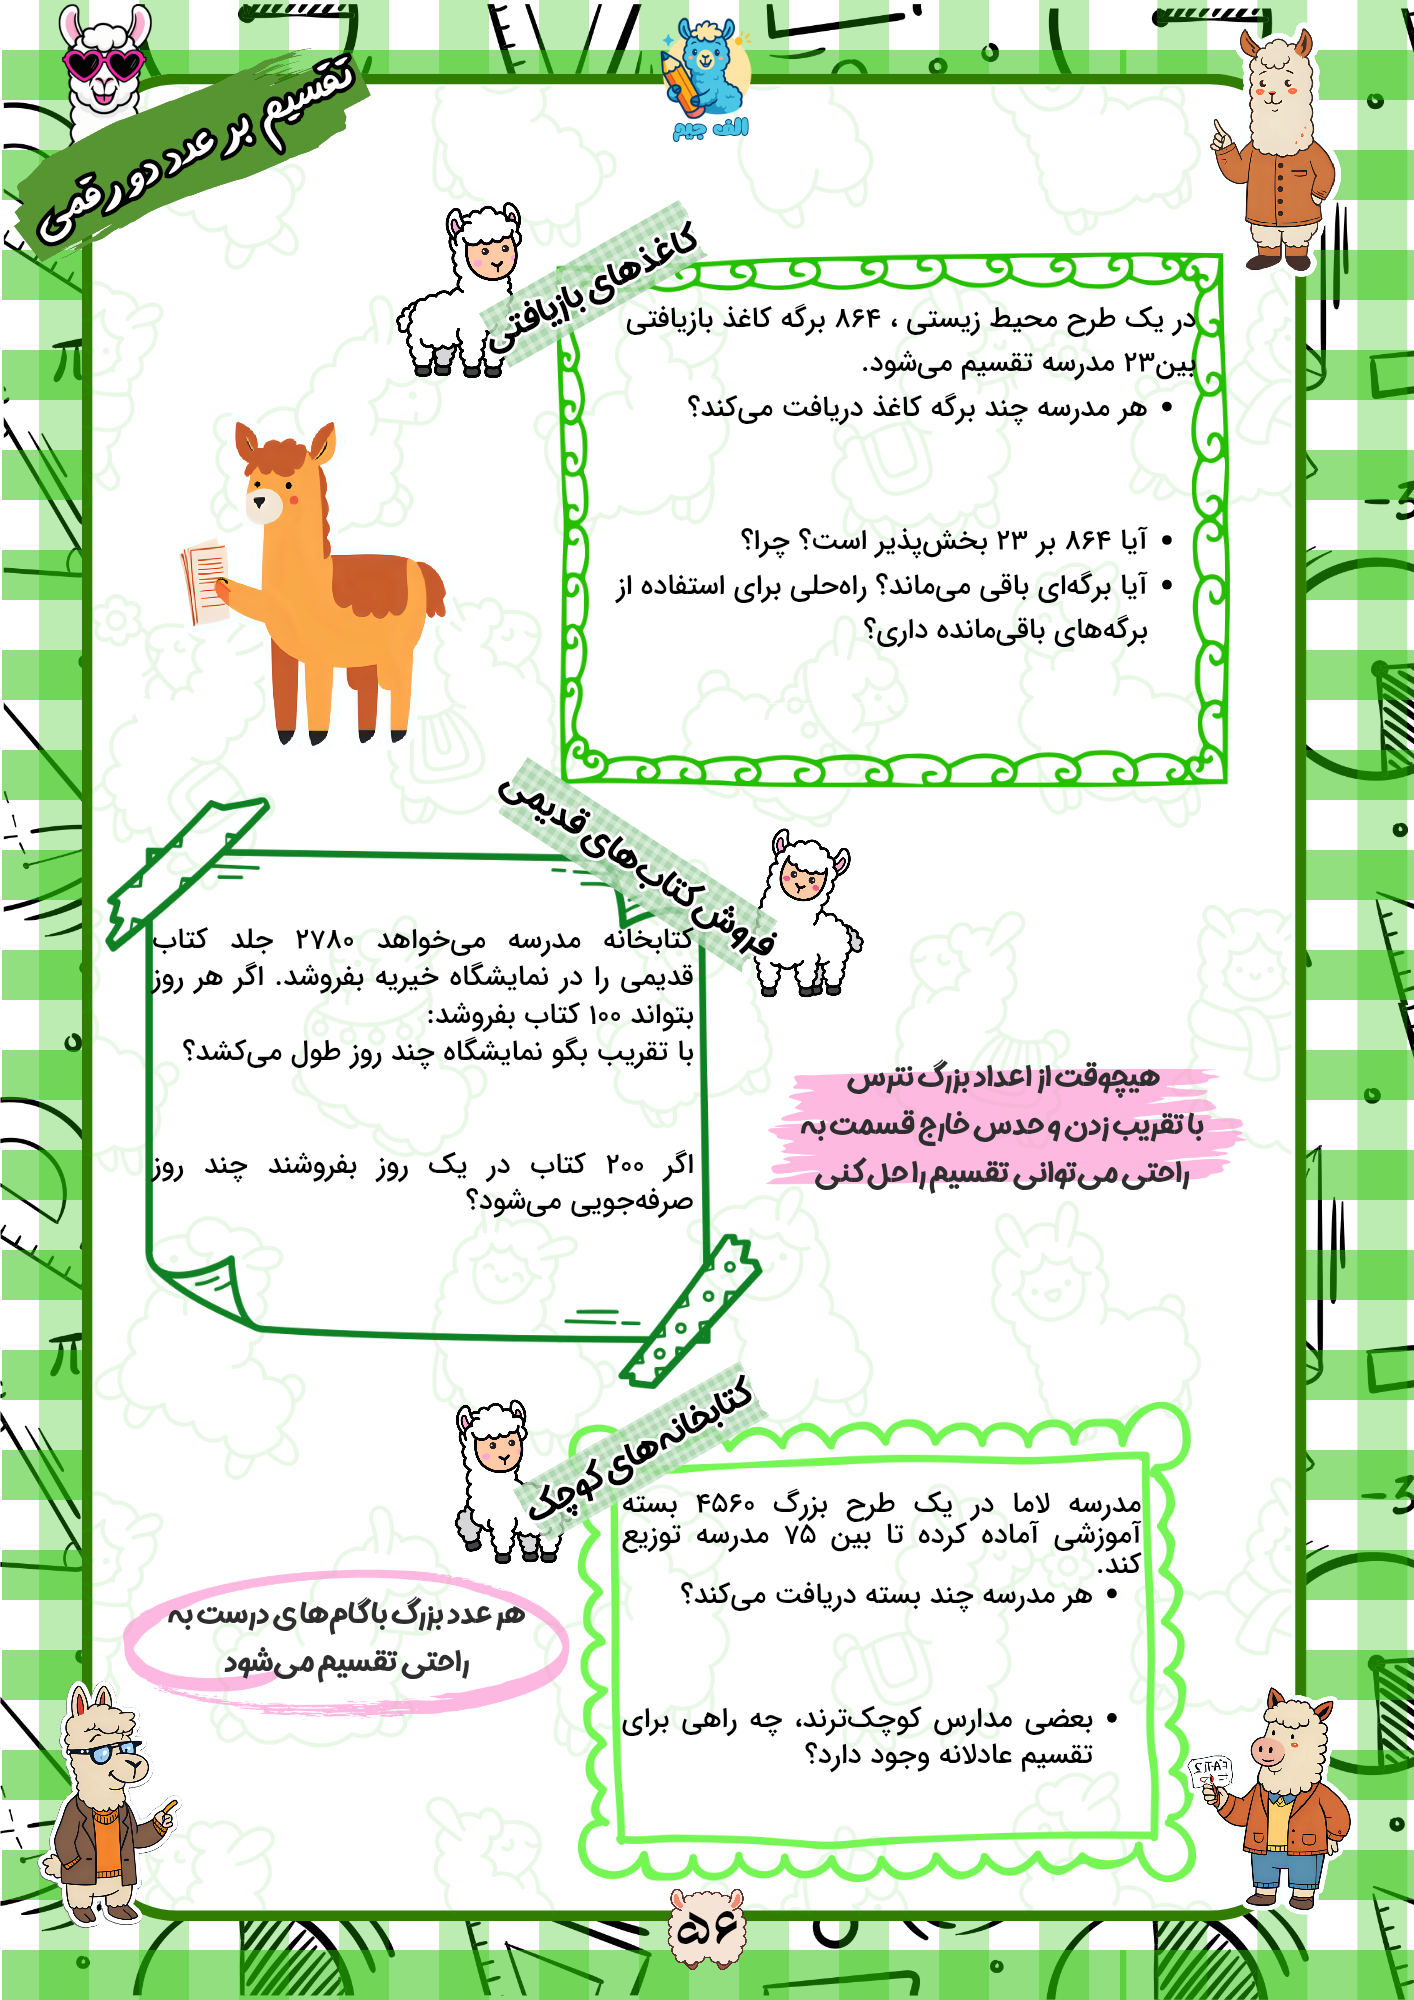 تقسیم بر عدد دو رقمی
الف جیم
کاغذهای بازیافتی
در یک طرح محیط زیستی ، ۸۶۴ برگه کاغذ بازیافتی
بین۲۳ مدرسه تقسیم می‌شود.
• هر مدرسه چند برگه کاغذ دریافت می‌کند؟
• آیا ۸۶۴ بر ۲۳ بخش‌پذیر است؟ چرا؟
• آیا برگه‌ای باقی می‌ماند؟ راه‌حلی برای استفاده از
برگه‌های باقی‌مانده داری؟
فروش کتاب‌های قدیمی
کتابخانه مدرسه می‌خواهد ۲۷۸۰ جلد کتاب
قدیمی را در نمایشگاه خیریه بفروشد. اگر هر روز
بتواند ۱۰۰ کتاب بفروشد:
با تقریب بگو نمایشگاه چند روز طول می‌کشد؟
اگر ۲۰۰ کتاب در یک روز بفروشند چند روز
صرفه‌جویی می‌شود؟
هیچوقت از اعداد بزرگ نترس
با تقریب زدن و حدس خارج قسمت به
راحتی می‌توانی تقسیم را حل کنی
کتابخانه‌های کوچک
مدرسه لاما در یک طرح بزرگ ۴۵۶۰ بسته
آموزشی آماده کرده تا بین ۷۵ مدرسه توزیع
کند.
• هر مدرسه چند بسته دریافت می‌کند؟
• بعضی مدارس کوچک‌ترند، چه راهی برای
تقسیم عادلانه وجود دارد؟
هر عدد بزرگ با گام‌های درست به
راحتی تقسیم می‌شود
۵۶